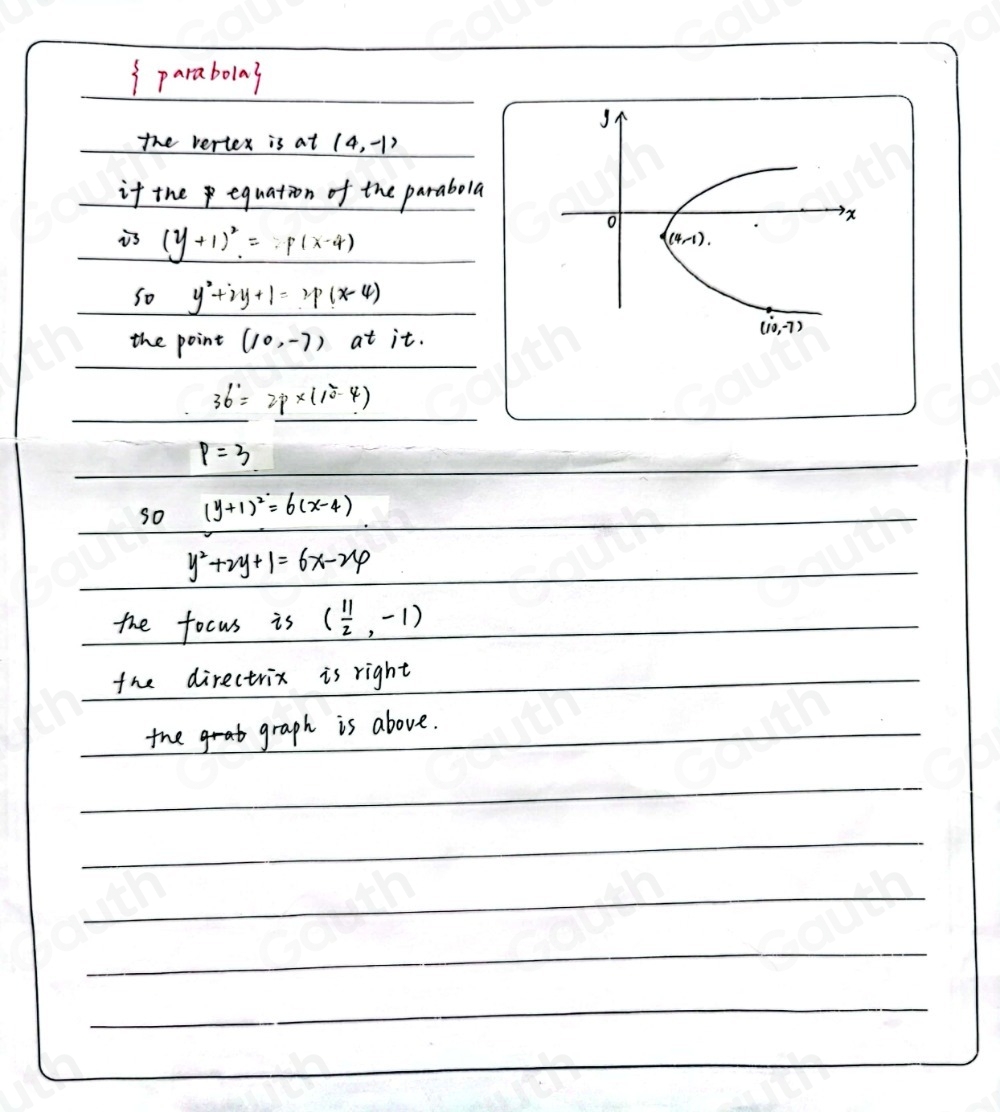 { parabola}
the vertex is at (4,-1)
if the equation of the parabola
is (y+1)² = 2p(x-4)
so y²+2y+1= 2p(x-4)
the point (10,-7) at it.
36= 2p×(10-4)
P=3
so (y+1)²=6(x-4)
y²+2y+1=6x-24
the focus is (11/2, -1)
the directrix is right
the grab graph is above.
y
x
0
(4,-1).
(10,-7)
Gauth